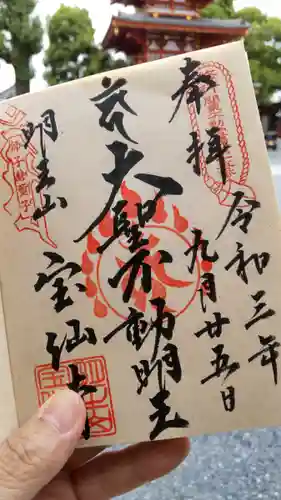 奉拝
令和三年
九月廿五日
大聖不動明王
明王山
宝仙寺